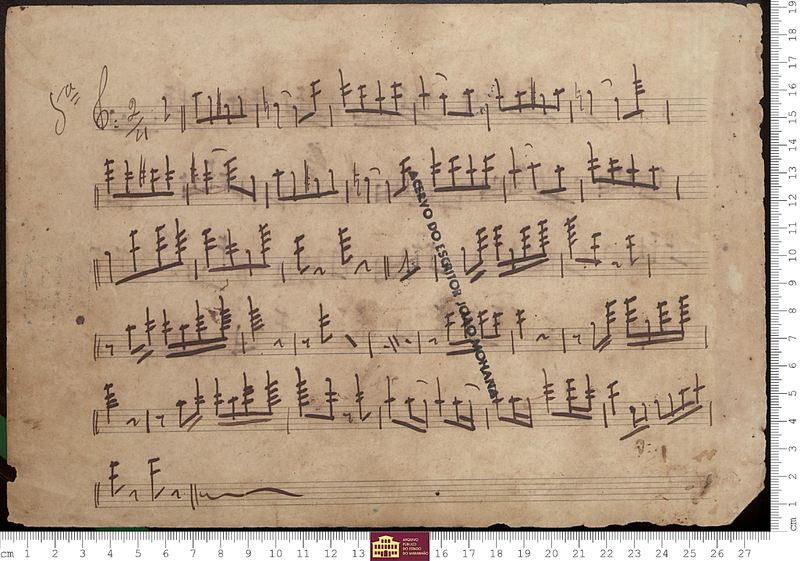 5ª
2/4
ACERVO DO ESCRITOR JOÃO MOHANA
cm 1 2 3 4 5 6 7 8 9 10 11 12 13
ARQUIVO
PÚBLICO
DO ESTADO
DO MARANHÃO
16 17 18 19 20 21 22 23 24 25 26 27
cm 1 2 3 4 5 6 7 8 9 10 11 12 13 14 15 16 17 18 19